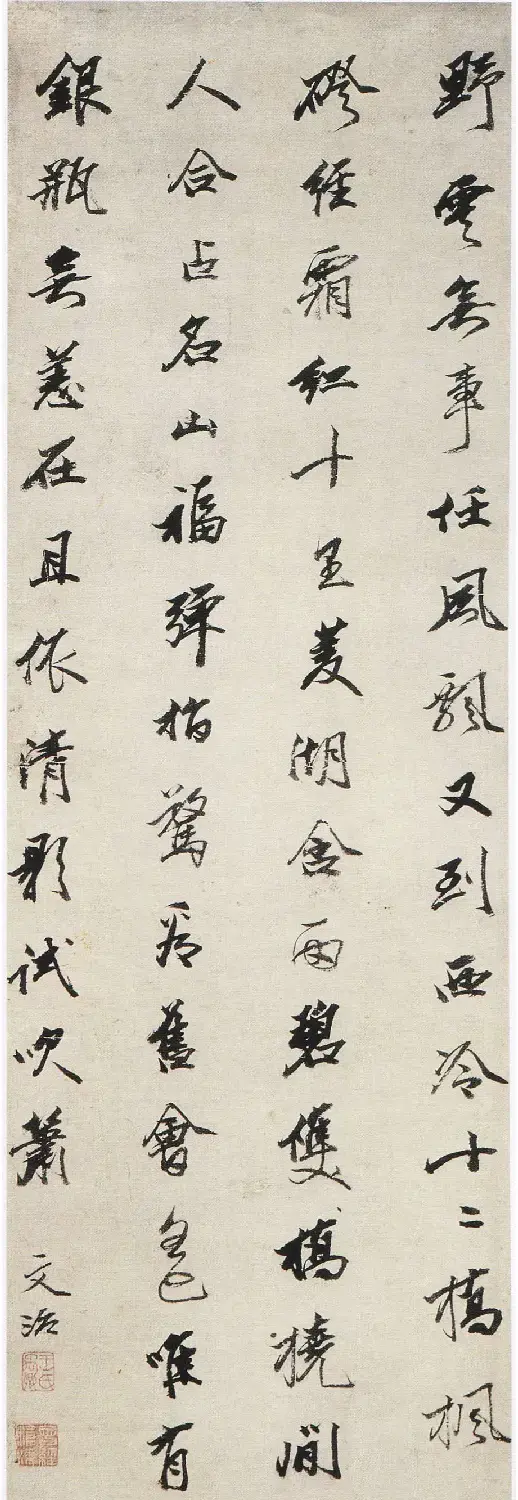 野雲無事任風飄又到西泠十二橋楓
磴經霜紅十里菱湖含雨碧雙橋橈閒
人合占名山福彈指驚看舊會遙唯有
銀瓶無恙在且依清影試吹簫
文治
王氏禹卿